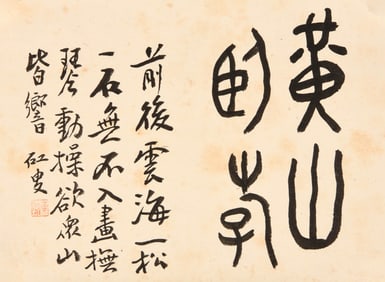 黄山
臥斿
前後雲海一松
一石無不入畫撫
琴動操欲衆山
皆響 虹叟